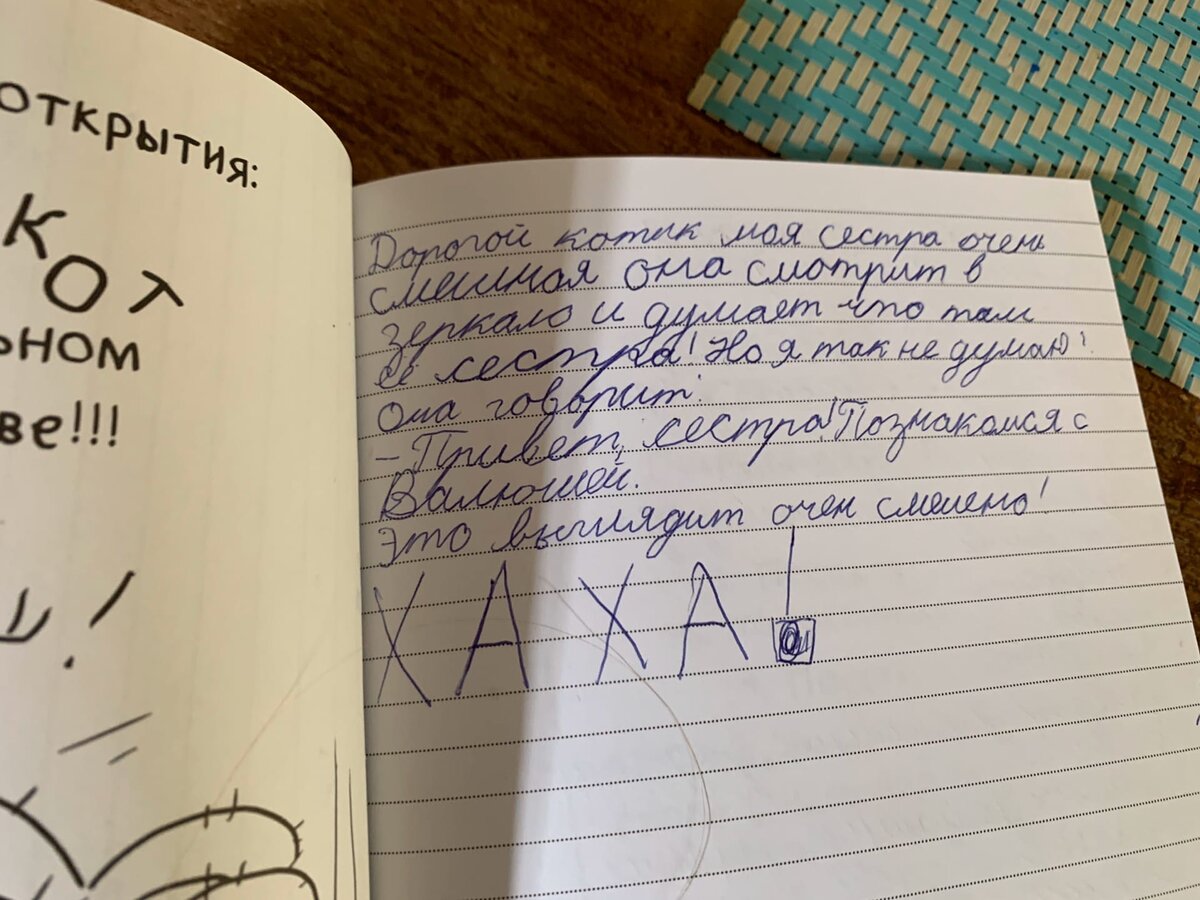 ОТКРЫТИЯ:
КОТ
ЬНОМ
ВЕ!!!
Дорогой котик моя сестра очень
смешная она смотрит в
зеркало и думает что там
её сестра! Но я так не думаю!
Она говорит:
– Привет, сестра! Познакомся с
Валюшей.
Это выглядит очен смешно!
ХА ХА!